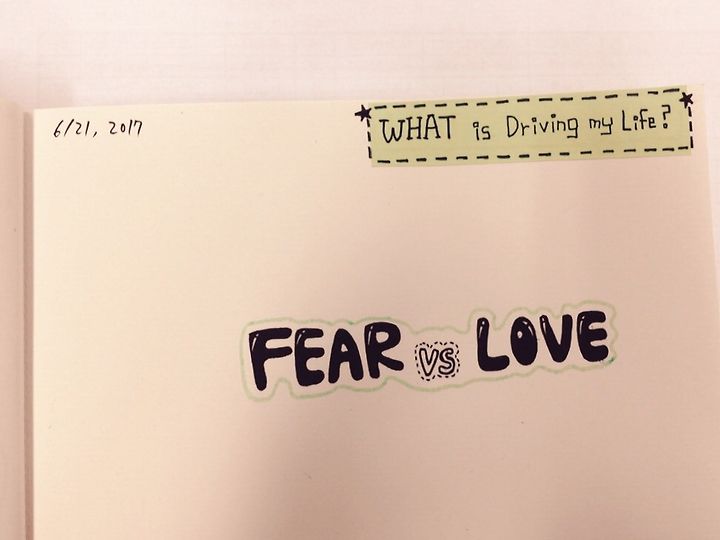 6/21, 2017
WHAT is Driving my Life?
FEAR VS LOVE